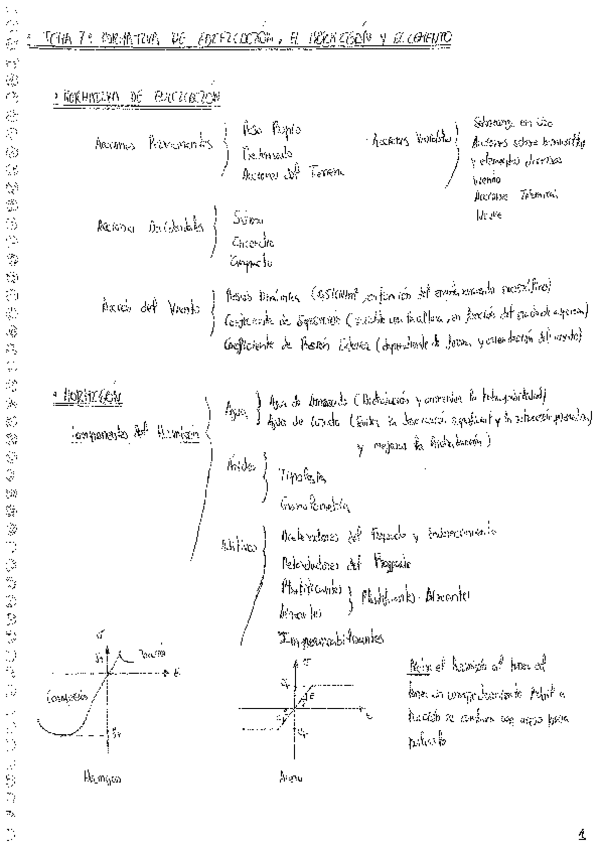 TEMA 7: NORMATIVA DE EDIFICACIÓN, EL HORMIGÓN Y EL CEMENTO
NORMATIVA DE EDIFICACIÓN
Acciones Permanentes
Peso Propio
Pretensado
Acciones del Terreno
Acciones Variables
Sobrecarga en Uso
Acciones sobre barandillas
y elementos divisorios
Viento
Acciones Térmicas
Nieve
Acciones Accidentales
Sismo
Incendio
Impacto
Acción del Viento
Presión Dinámica en función del emplazamiento
Coeficiente de Exposición en función del
Coeficiente de Presión Externa (dependiente de forma y orientación del viento)
HORMIGÓN
Componentes del Hormigón
Agua
Agua de Amasado (Hidratación y aumentar la trabajabilidad)
Agua de Curado (Evitar la desecación superficial y la
y mejorar la hidratación)
Áridos
Tipología
Granulometría
Aditivos
Aceleradores del Fraguado y Endurecimiento
Retardadores del Fraguado
Plastificantes
Aireantes
Plastificantes-Aireantes
Impermeabilizantes
σ
Tracción
ε
Compresión
Hormigón
σ
ε
Acero
Nota: el hormigón al tener
tener un comportamiento frente a
tracción se combina con acero para
1